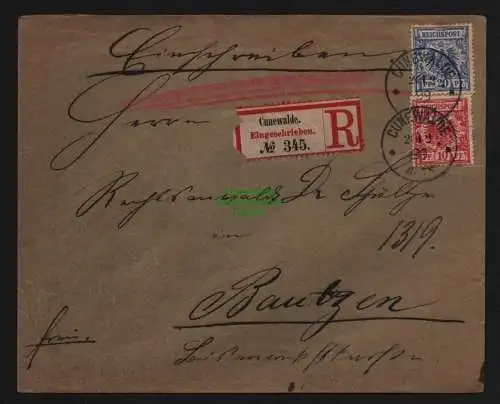 Einschreiben
REICHSPOST
20
CUNEWALDE
10
CUNEWALDE
Herrn
Cunewalde.
Eingeschrieben.
№ 345.
R
Rechtsanwalt Dr Schulze
in
1319.
Bautzen
frei.
Bismarkstrasse.